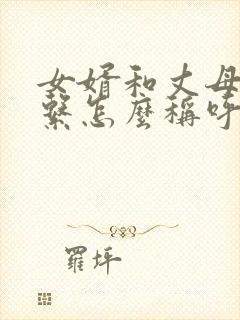 女婿和丈母
繫怎麼稱呼
羅坪